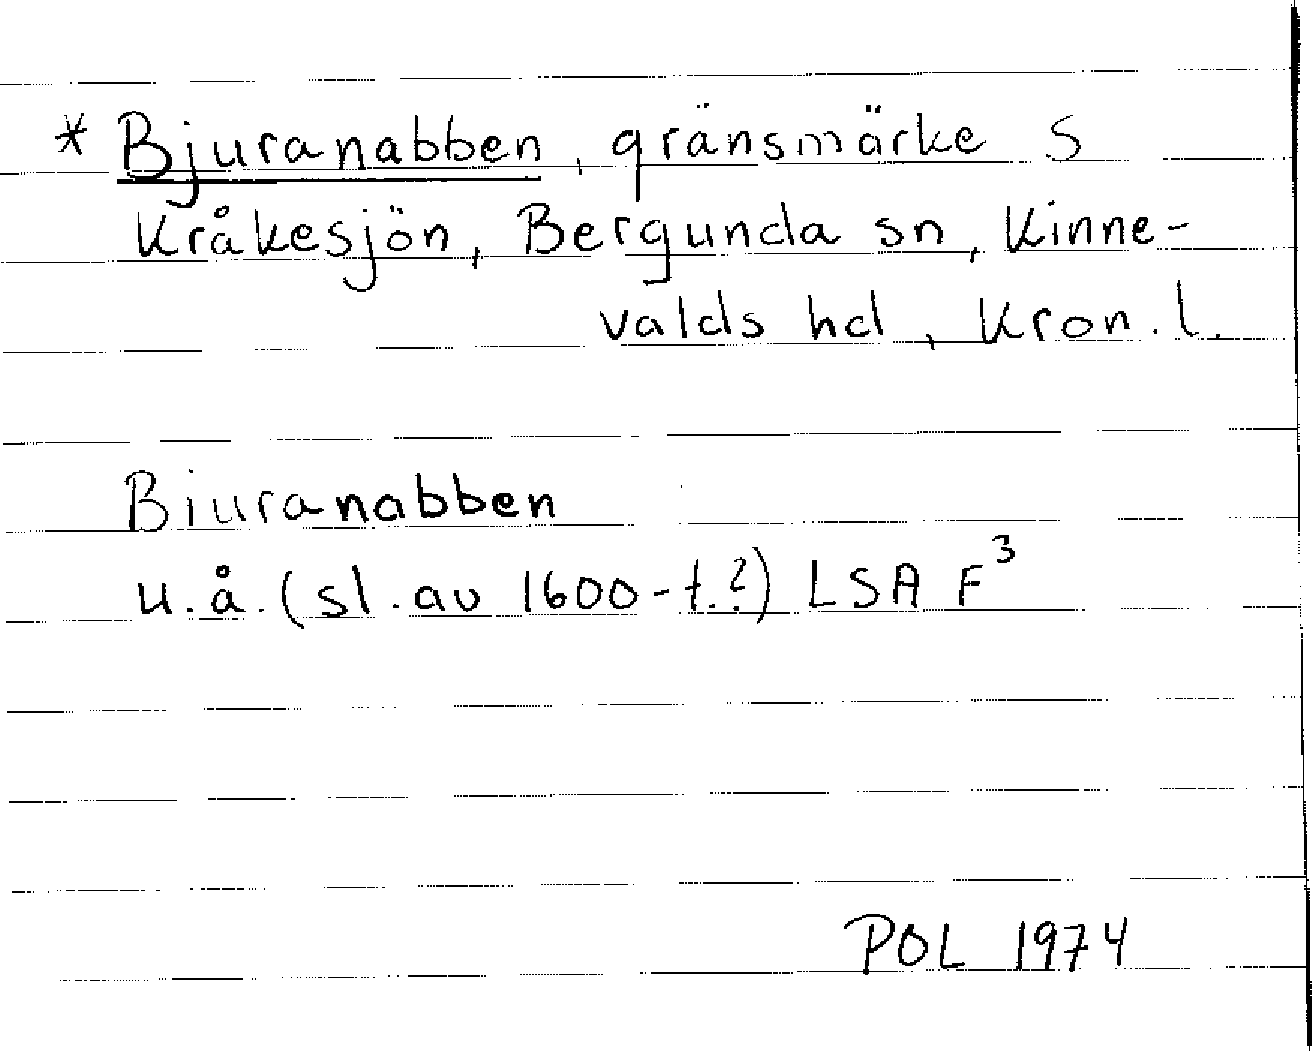 * Bjuranabben, gränsmärke S
Kråkesjön, Bergunda sn, Kinne-
valds hd, Kron. l.
Biuranabben
u.å. (sl. av 1600-t.?) LSA F³
POL 1974